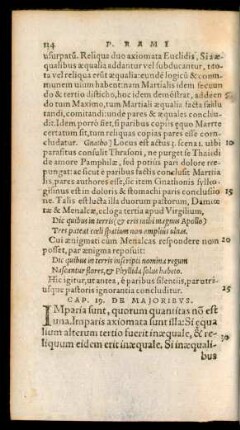 114 P. RAMI
usurpatũ. Reliqua duo axiomata Euclidis, Si æ-
qualibus æqualia addantur vel subducantur, to-
ta vel reliqua erũt æqualia: eundẽ logicũ & com-
munem usum habent: nam Martialis idem secun
do & tertio disticho, hoc idem demõstrat, addẽn 5
do tum Maximo, tum Martiali æqualia facta salu
tandi, comitandi: unde pares & æquales conclu-
dit. Idem porrò siet, si paribus copiis equo Marte
certatum sit, tum reliquas copias pares esse con-
cludatur. Gnatho) Locus est actus 3. scena 1. ubi
parasitus consulit Thrasoni, ne purget se Thaidi
de amore Pamphilæ, sed potius pari dolore re-
pungat: ac sicut è paribus factis conclusit Martia
lis, pares authores esse, sic item Gnathonis syllo-
gismus est in doloris & stomachi paris conclusio 15
ne. Talis est lucta illa duorum pastorum, Damœ
tæ & Menalcæ, ecloga tertia apud Virgilium,
Dic quibus in terris (& eris mihi magnus Apollo)
Tres pateat cœli spatium non amplius ulnas.
Cui ænigmati cum Menalcas respondere non 20
posset, par ænigma reposuit:
Dic quibus in terris inscripti nomina regum
Nascantur flores, & Phyllida solus habeto.
Hic igitur, ut antea, è paribus silentiis, par utri-
usque pastoris ignorantia concluditur. 25
CAP. 19. DE MAJORIBUS.
IMparia sunt, quorum quantitas nõ est
una. Imparis axiomata sunt illa: Si æqua
lium alterum tertio fuerit inæquale, & re-
liquum eidem erit inæquale. Si inæquali- 30
bus